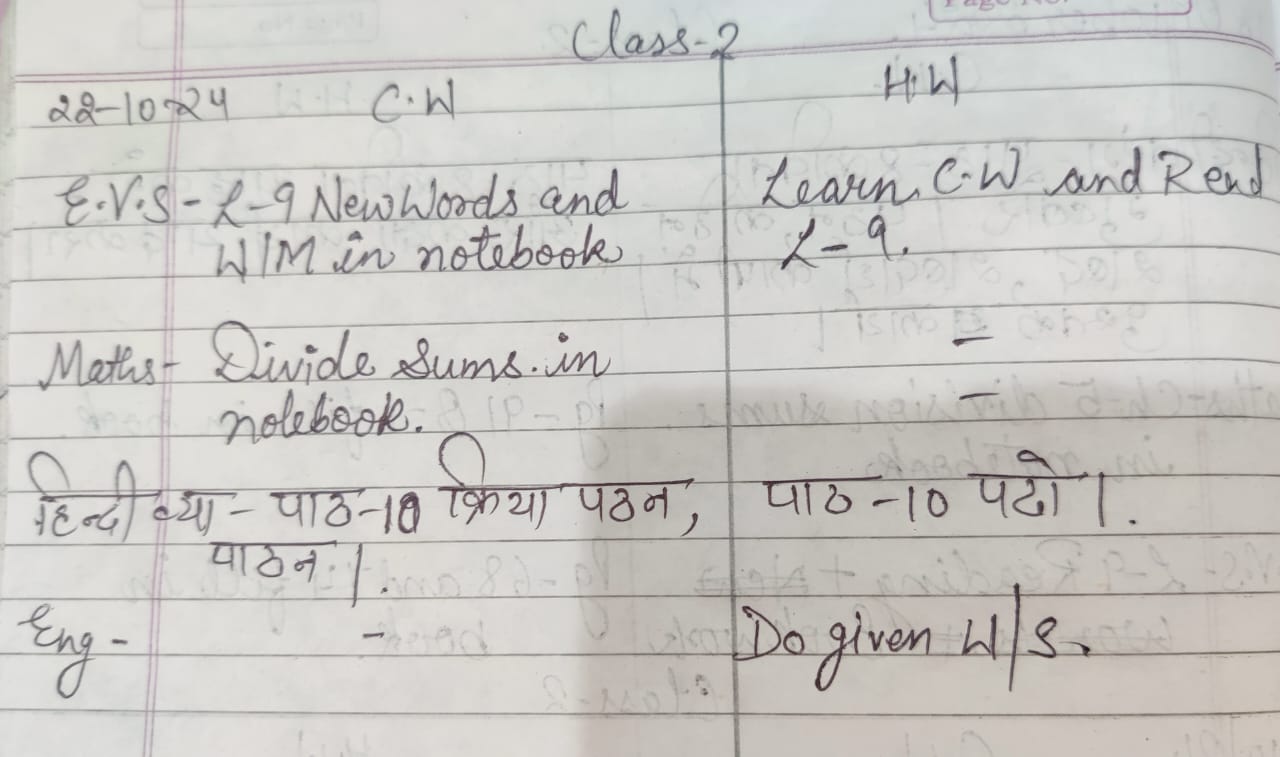 Class-2
22-10-24 C.W H.W
E.V.S - L-9 New Words and Learn C.W and Read
W/M in notebook L-9.
Maths- Divide Sums. in =
notebook. -
हिन्दी व्या - पाठ-10 क्रिया पठन, पाठ -10 पढो ।.
पाठन ।.
Eng - - Do given W/S.